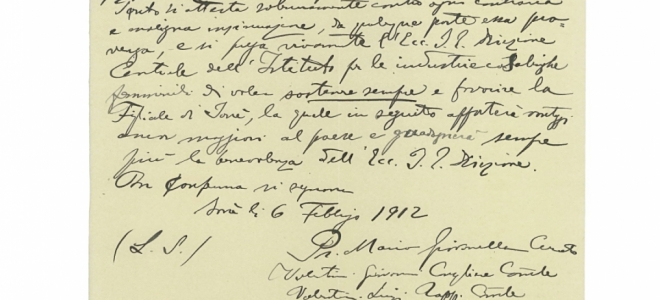 si attesta solennemente contro ogni contraria
e maligna insinuazione, da qualque parte essa pro-
venga, e si prega vivamente l'Ecc. I. R. Direzione
Centrale dell'Istituto per le industrie casalinghe
femminili di voler sostenere sempre e favorire la
Filiale di Soné, la quale in seguito apporterà vantaggi
ancor maggiori al paese e guadagnerà sempre
più la benevolenza dell'Ecc. I. R. Direzione.
Per Conferma si firmano
li 6 Febbrajo 1912
(L. S.)
Pr. Mario Curato
Valentini Giovanni
Valentini Luigi Rapp. Comle